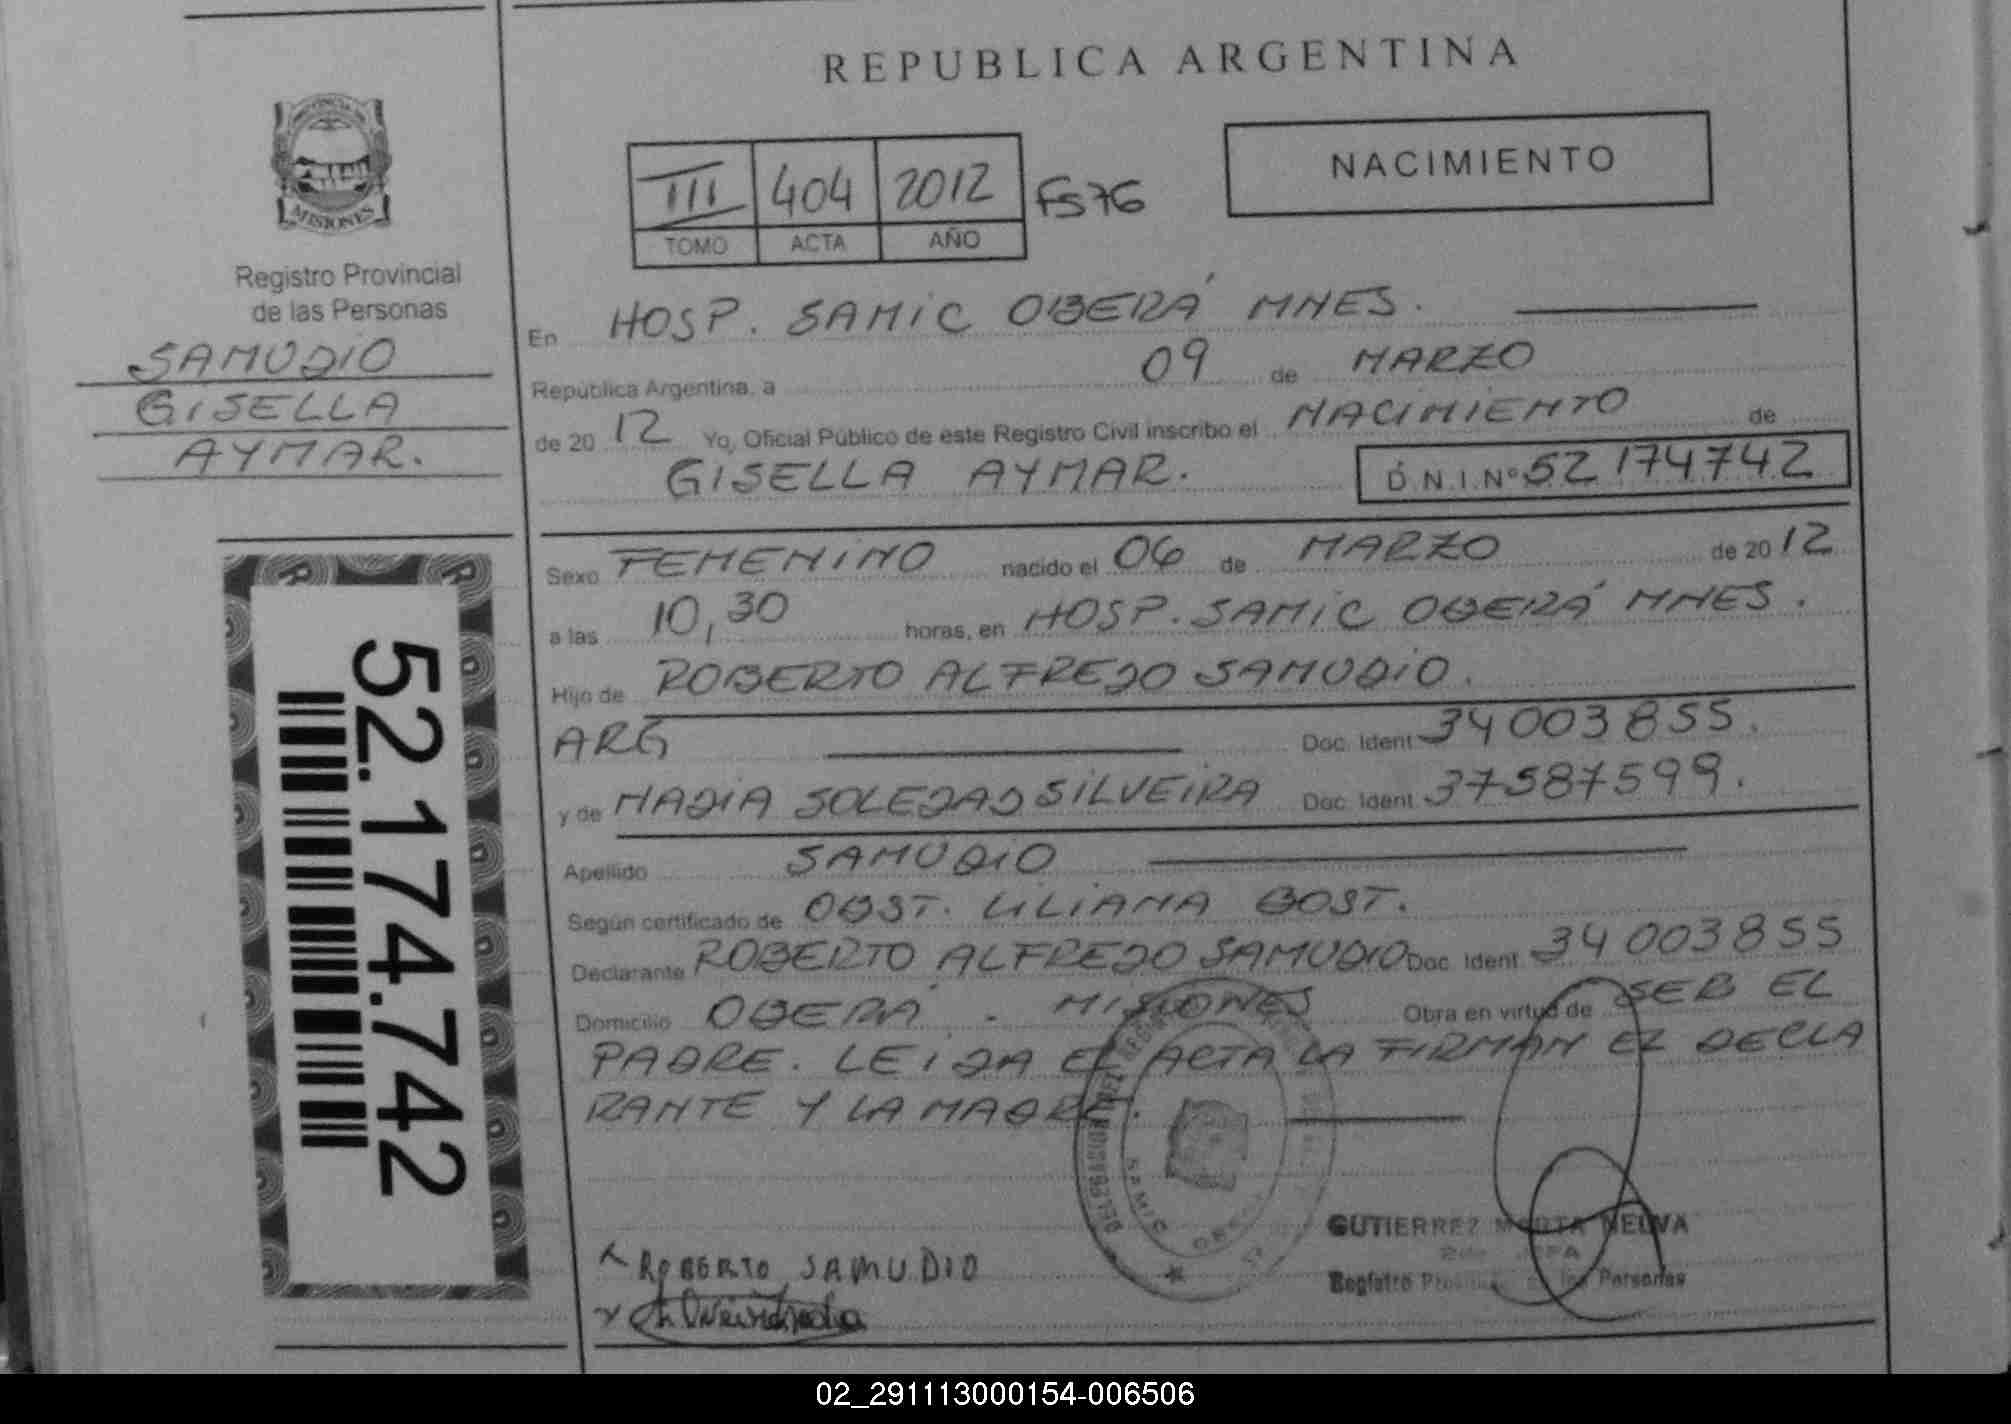 REPUBLICA ARGENTINA
NACIMIENTO
III 404 2012 FS76
TOMO ACTA AÑO
MISIONES
Registro Provincial
de las Personas
SAMUDIO
GISELLA
AYMAR.
52.174.742
En HOSP. SAMIC OBERÁ MNES.
República Argentina, a 09 de MARZO
de 2012 Yo, Oficial Público de este Registro Civil inscribo el NACIMIENTO de
GISELLA AYMAR. D.N.I.Nº 52174742
Sexo FEMENINO nacido el 06 de MARZO de 2012
a las 10,30 horas, en HOSP. SAMIC OBERÁ MNES.
Hijo de ROBERTO ALFREDO SAMUDIO.
ARG Doc. Ident 34003855.
y de NADIA SOLEDAD SILVEIRA Doc. Ident 37587599.
Apellido SAMUDIO
Según certificado de OBST. LILIANA BOST.
Declarante ROBERTO ALFREDO SAMUDIO Doc. Ident 34003855
Domicilio OBERÁ - MISIONES Obra en virtud de SER EL
PADRE. LEIDA EL ACTA LA FIRMAN EL DECLA
RANTE Y LA MADRE.
SAMIC
GUTIERREZ MARTA NELVA
JEFA
Registro de las Personas
ROBERTO SAMUDIO
02_291113000154-006506